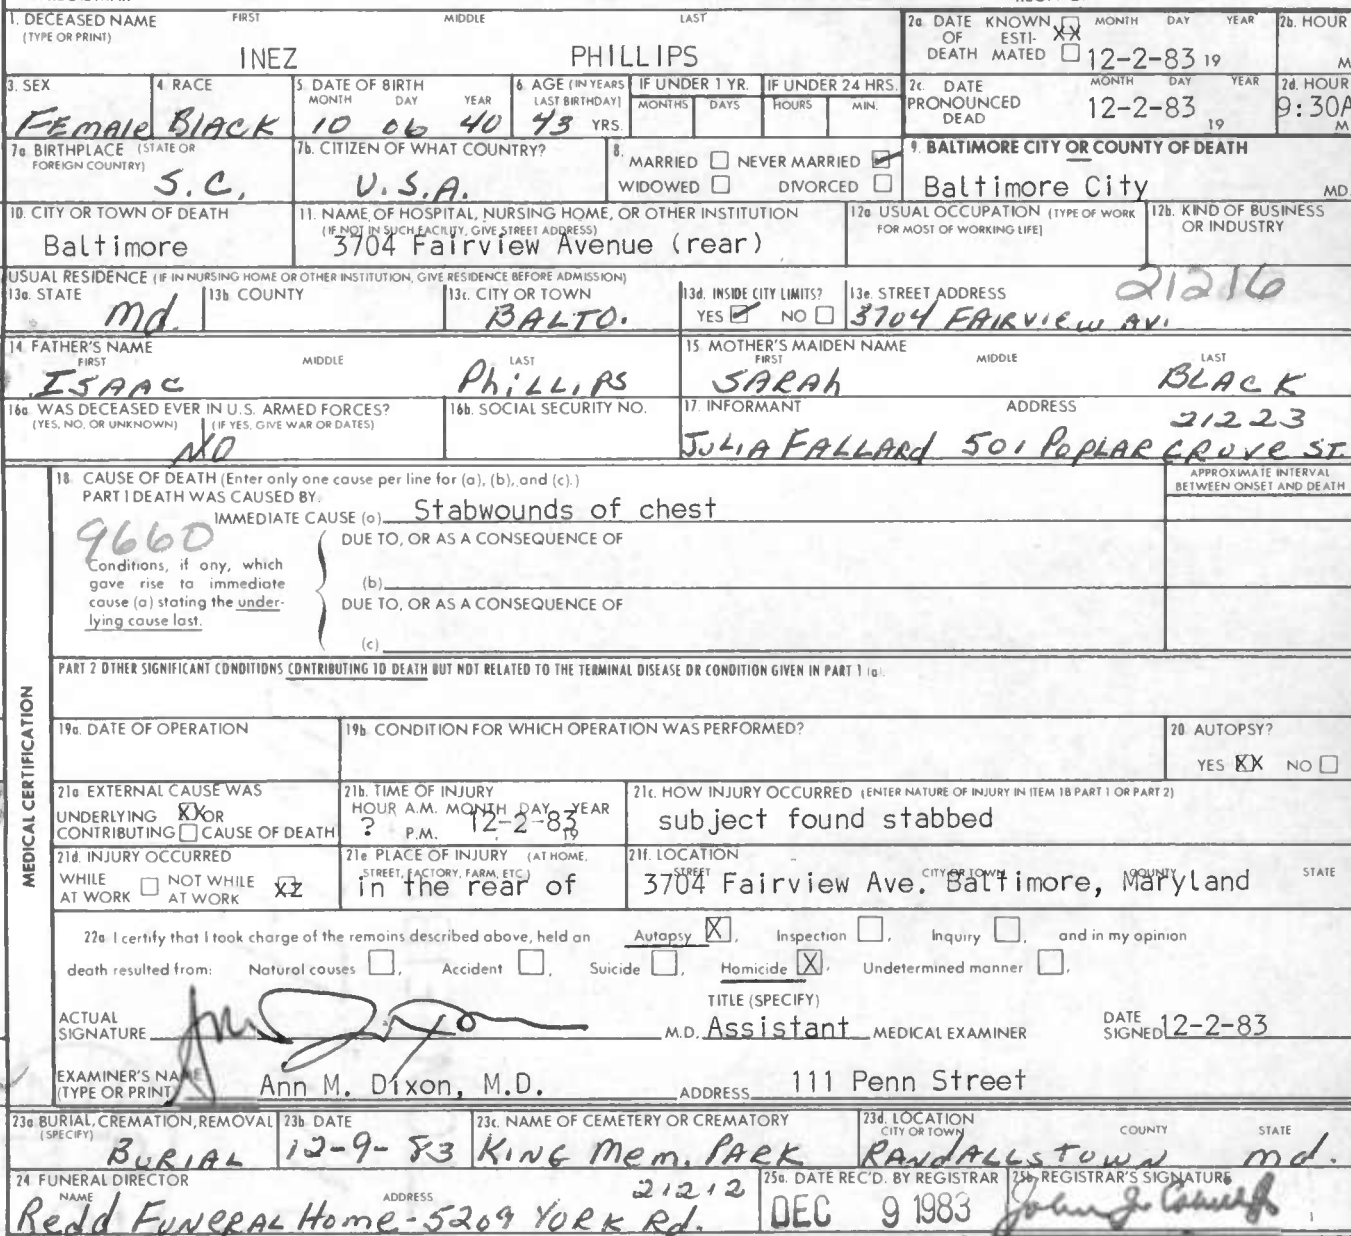 1. DECEASED NAME FIRST MIDDLE LAST
(TYPE OR PRINT)
INEZ PHILLIPS
2a. DATE KNOWN XX MONTH DAY YEAR
OF ESTI-
DEATH MATED 12-2-83 19
2b. HOUR
M
3. SEX
Female
4. RACE
BLACK
5. DATE OF BIRTH
MONTH DAY YEAR
10 06 40
6. AGE (IN YEARS
LAST BIRTHDAY)
43 YRS.
IF UNDER 1 YR.
MONTHS DAYS
IF UNDER 24 HRS.
HOURS MIN.
2c. DATE MONTH DAY YEAR
PRONOUNCED
DEAD 12-2-83 19
2d. HOUR
9:30A
M
7a. BIRTHPLACE (STATE OR
FOREIGN COUNTRY)
S.C.
7b. CITIZEN OF WHAT COUNTRY?
U.S.A.
8.
MARRIED NEVER MARRIED
WIDOWED DIVORCED
9. BALTIMORE CITY OR COUNTY OF DEATH
Baltimore City MD.
10. CITY OR TOWN OF DEATH
Baltimore
11. NAME OF HOSPITAL, NURSING HOME, OR OTHER INSTITUTION
(IF NOT IN SUCH FACILITY, GIVE STREET ADDRESS)
3704 Fairview Avenue (rear)
12a USUAL OCCUPATION (TYPE OF WORK
FOR MOST OF WORKING LIFE)
12b. KIND OF BUSINESS
OR INDUSTRY
USUAL RESIDENCE (IF IN NURSING HOME OR OTHER INSTITUTION, GIVE RESIDENCE BEFORE ADMISSION)
13a. STATE
Md.
13b. COUNTY
13c. CITY OR TOWN
BALTO.
13d. INSIDE CITY LIMITS?
YES NO
13e. STREET ADDRESS 21216
3704 FAIRVIEW AV.
14. FATHER'S NAME
FIRST MIDDLE LAST
ISAAC PhiLLiPS
15. MOTHER'S MAIDEN NAME
FIRST MIDDLE LAST
SARAh BLACK
16a. WAS DECEASED EVER IN U.S. ARMED FORCES?
(YES, NO, OR UNKNOWN) (IF YES, GIVE WAR OR DATES)
NO
16b. SOCIAL SECURITY NO.
17. INFORMANT ADDRESS
21223
JULIA FALLARd 501 POPLAR GROVE ST.
MEDICAL CERTIFICATION
18. CAUSE OF DEATH (Enter only one cause per line for (a), (b), and (c).)
PART I DEATH WAS CAUSED BY.
APPROXIMATE INTERVAL
BETWEEN ONSET AND DEATH
IMMEDIATE CAUSE (a) Stabwounds of chest
9660
DUE TO, OR AS A CONSEQUENCE OF
Conditions, if any, which
gave rise to immediate
cause (a) stating the under-
lying cause last.
(b)
DUE TO, OR AS A CONSEQUENCE OF
(c)
PART 2 OTHER SIGNIFICANT CONDITIONS CONTRIBUTING TO DEATH BUT NOT RELATED TO THE TERMINAL DISEASE OR CONDITION GIVEN IN PART 1 (a).
19a. DATE OF OPERATION
19b. CONDITION FOR WHICH OPERATION WAS PERFORMED?
20. AUTOPSY?
YES XX NO
21a. EXTERNAL CAUSE WAS
UNDERLYING XX OR
CONTRIBUTING CAUSE OF DEATH
21b. TIME OF INJURY
HOUR A.M. MONTH DAY YEAR
? P.M. 12-2-83 19
21c. HOW INJURY OCCURRED (ENTER NATURE OF INJURY IN ITEM 18 PART 1 OR PART 2)
subject found stabbed
21d. INJURY OCCURRED
WHILE NOT WHILE
AT WORK AT WORK
21e. PLACE OF INJURY (AT HOME,
STREET, FACTORY, FARM, ETC.)
in the rear of
21f. LOCATION
STREET CITY OR TOWN COUNTY STATE
3704 Fairview Ave. Baltimore, Maryland
22a. I certify that I took charge of the remains described above, held an Autopsy X, Inspection , Inquiry , and in my opinion
death resulted from: Natural causes , Accident , Suicide , Homicide X, Undetermined manner .
ACTUAL
SIGNATURE
TITLE (SPECIFY)
M.D. Assistant MEDICAL EXAMINER
DATE
SIGNED 12-2-83
EXAMINER'S NAME
(TYPE OR PRINT) Ann M. Dixon, M.D. ADDRESS 111 Penn Street
23a. BURIAL, CREMATION, REMOVAL
(SPECIFY)
BURIAL
23b. DATE
12-9-83
23c. NAME OF CEMETERY OR CREMATORY
KING Mem. PARK
23d. LOCATION
CITY OR TOWN COUNTY STATE
RANDALLSTOWN md.
24. FUNERAL DIRECTOR
NAME ADDRESS 21212
Redd FUNERAL Home-5209 YORK Rd.
25a. DATE REC'D. BY REGISTRAR
DEC 9 1983
25b. REGISTRAR'S SIGNATURE